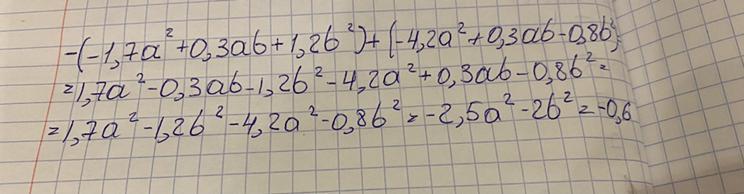 -(-1,7a²+0,3ab+1,2b²)+(-4,2a²+0,3ab-0,8b²)=
=1,7a²-0,3ab-1,2b²-4,2a²+0,3ab-0,8b²=
=1,7a²-1,2b²-4,2a²-0,8b²=-2,5a²-2b²=-0,6